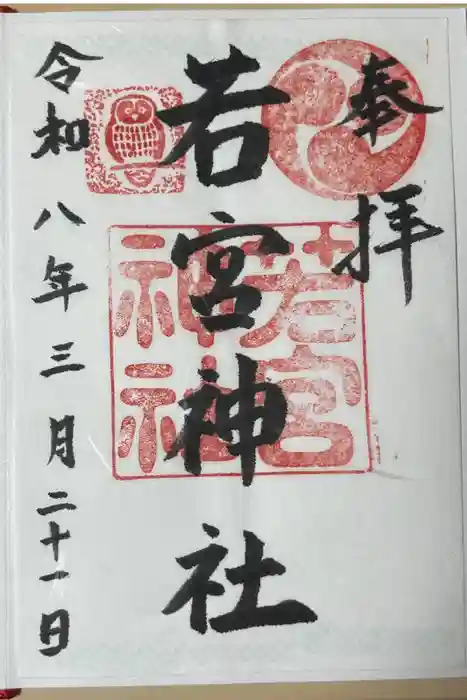 奉拝
若宮神社
若宮
神社
令和八年三月二十一日